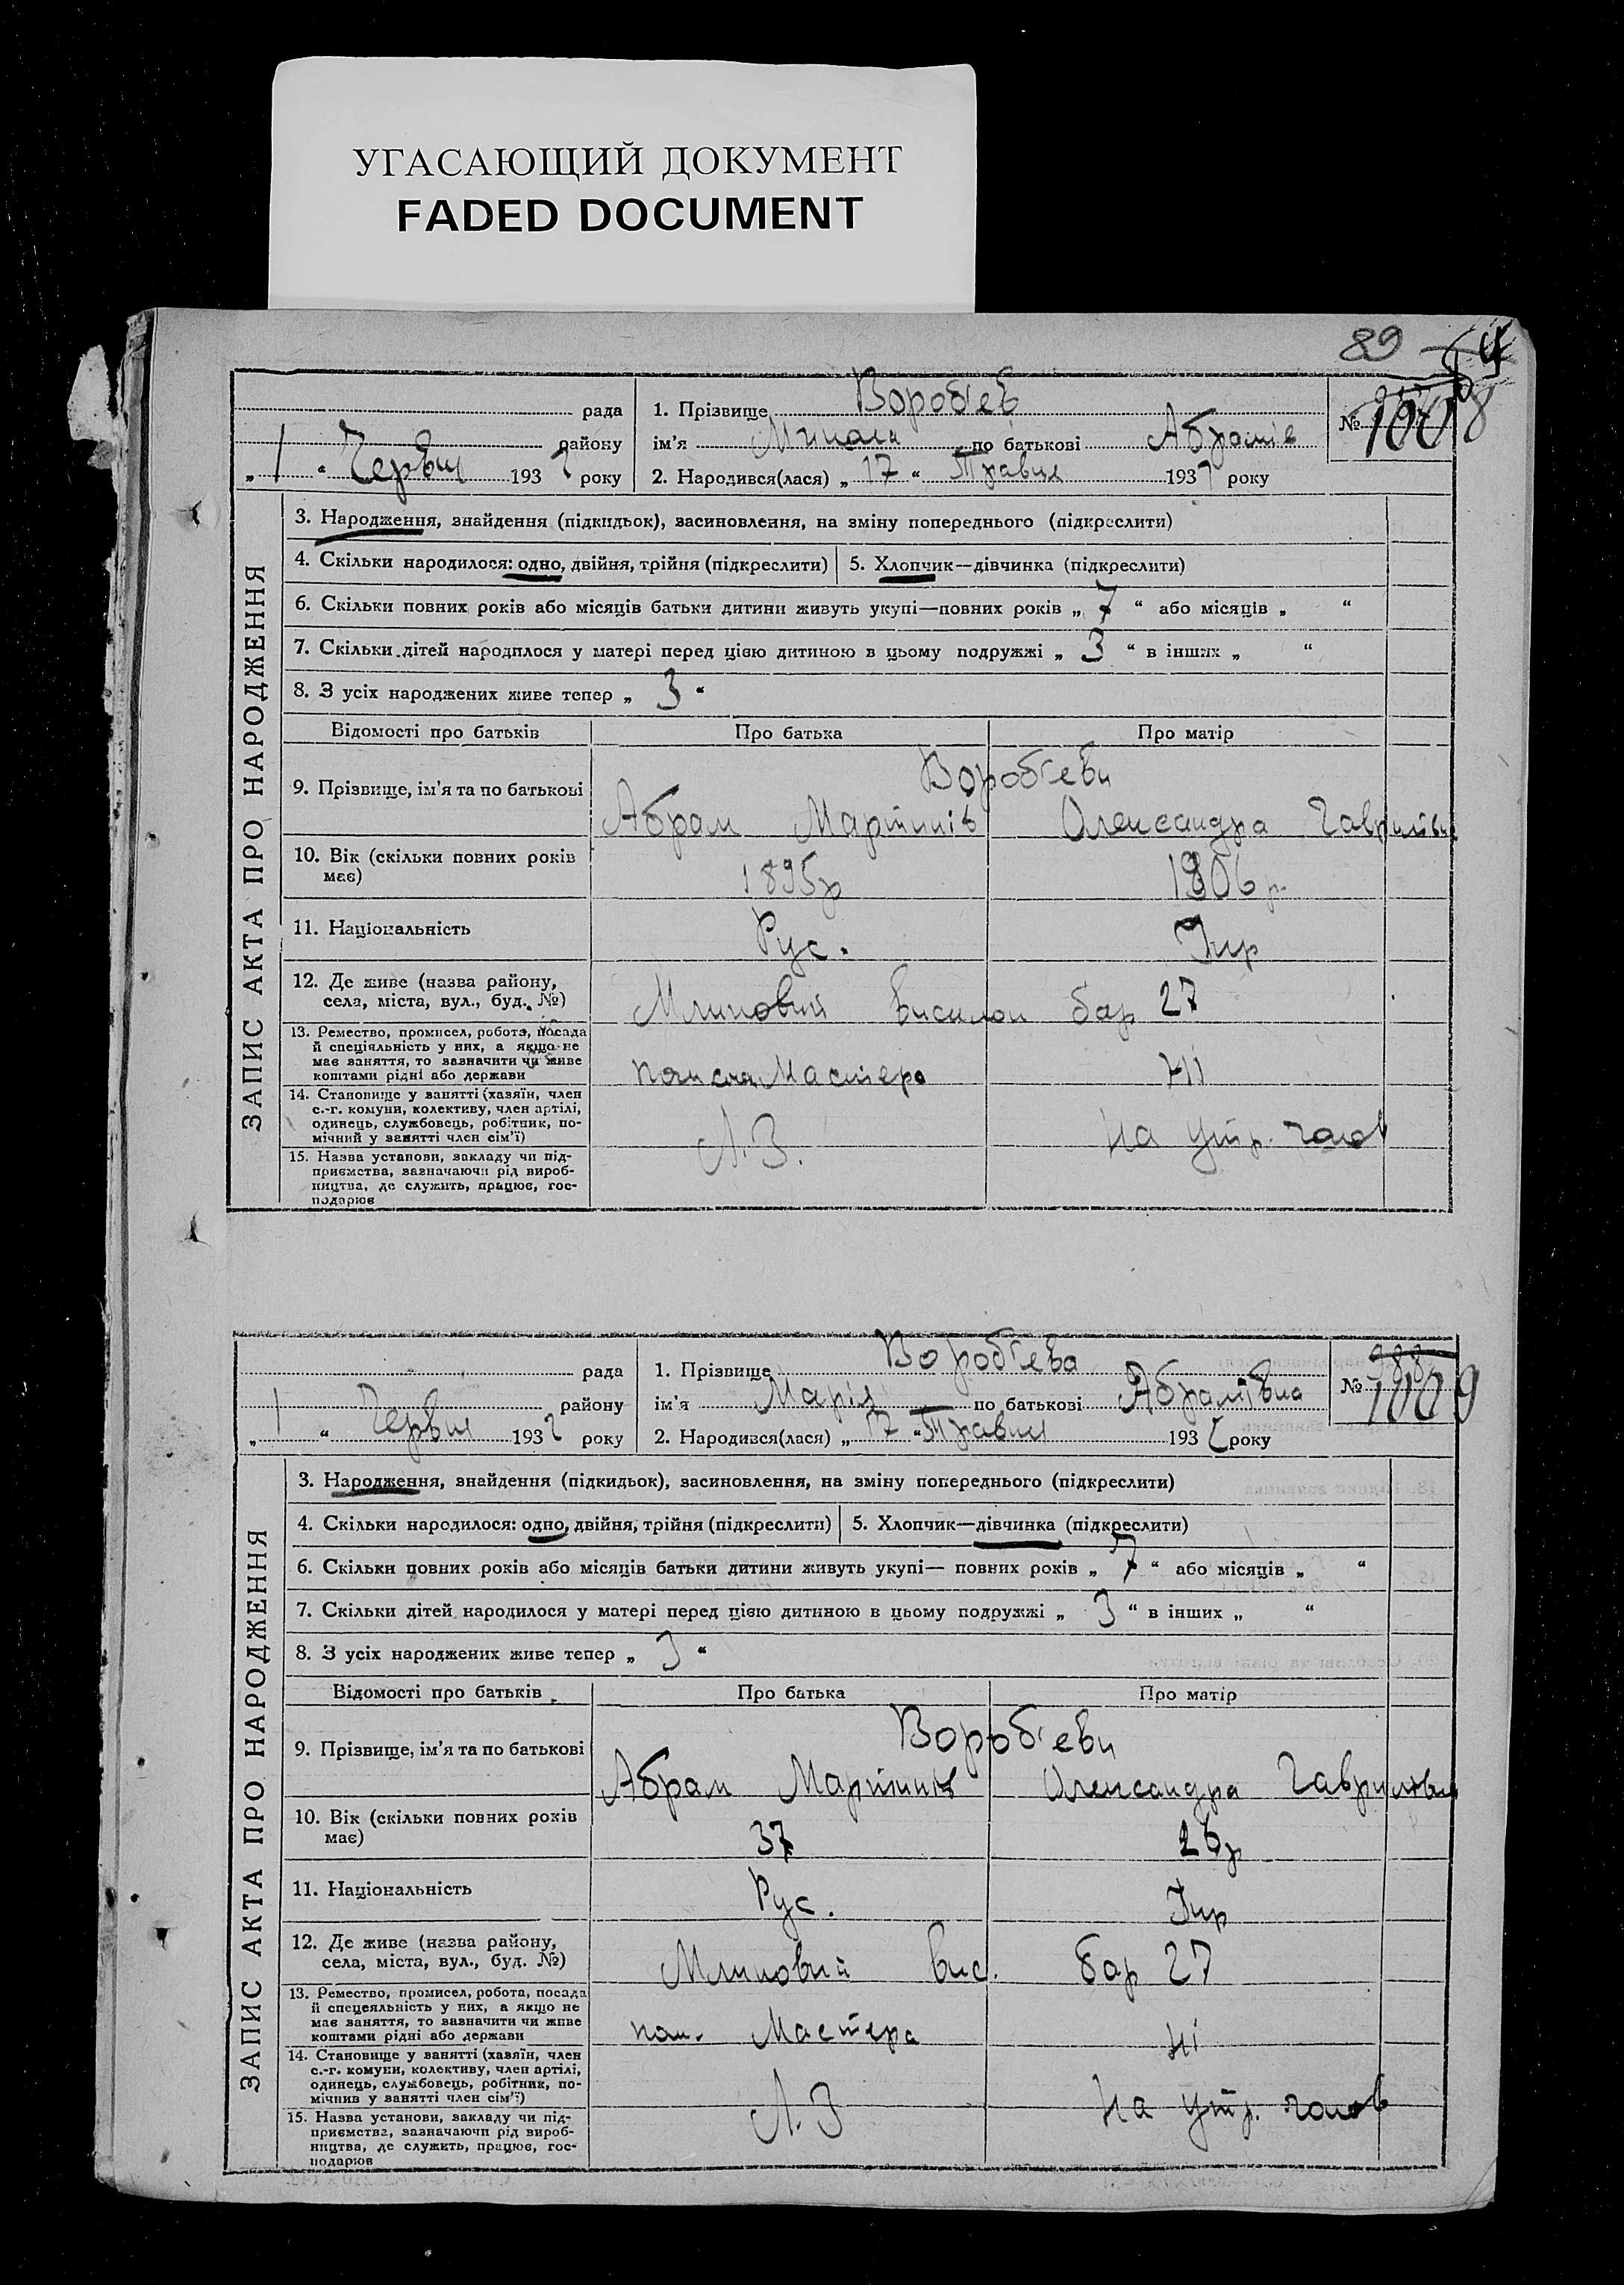 УГАСАЮЩИЙ ДОКУМЕНТ
FADED DOCUMENT
89
рада
району
„ 1 “ Червня 1932 року
1. Прізвище Вороб'ев
ім'я Микола по батькові Абрамів
2. Народився(лася) „ 17 “ Травня 193 року
№ 1008
ЗАПИС АКТА ПРО НАРОДЖЕННЯ
3. Народження, знайдення (підкидьок), засиновлення, на зміну попереднього (підкреслити)
4. Скільки народилося: одно, двійня, трійня (підкреслити)
5. Хлопчик—дівчинка (підкреслити)
6. Скільки повних років або місяців батьки дитини живуть укупі—повних років „ 7 “ або місяців „ “
7. Скільки дітей народилося у матері перед цією дитиною в цьому подружжі „ 3 “ в інших „ “
8. З усіх народжених живе тепер „ 3 “
Відомості про батьків Про батька Про матір
9. Прізвище, ім'я та по батькові
Вороб'еви
Абрам Мартинів Олександра Гаврилівна
10. Вік (скільки повних років
має)
1895р 1906 р.
11. Національність Рус. Укр
12. Де живе (назва району,
села, міста, вул., буд. №)
Млиновий бар 27
13. Ремество, промисел, робота, посада
й спеціяльність у них, а якщо не
має заняття, то зазначити чи живе
коштами рідні або держави
Мастера Ні
14. Становище у занятті (хазяїн, член
с.-г. комуни, колективу, член артілі,
одинець, службовець, робітник, по-
мічний у занятті член сім'ї)
Л.З. На утр. чолов
15. Назва установи, закладу чи під-
приємства, зазначаючи рід вироб-
ництва, де служить, працює, гос-
подарює
рада
району
„ 1 “ Червня 1932 року
1. Прізвище Вороб'ева
ім'я Марія по батькові Абрамівна
2. Народився(лася) „ 17 “ Травня 193 року
988
№ 1009
ЗАПИС АКТА ПРО НАРОДЖЕННЯ
3. Народження, знайдення (підкидьок), засиновлення, на зміну попереднього (підкреслити)
4. Скільки народилося: одно, двійня, трійня (підкреслити)
5. Хлопчик—дівчинка (підкреслити)
6. Скільки повних років або місяців батьки дитини живуть укупі— повних років „ 7 “ або місяців „ “
7. Скільки дітей народилося у матері перед цією дитиною в цьому подружжі „ 3 “ в інших „ “
8. З усіх народжених живе тепер „ 3 “
Відомості про батьків Про батька Про матір
9. Прізвище, ім'я та по батькові
Вороб'еви
Абрам Мартинів Олександра Гаврилівна
10. Вік (скільки повних років
має)
37 26р
11. Національність Рус. Укр
12. Де живе (назва району,
села, міста, вул., буд. №)
Млиновий вис. бар 27
13. Ремество, промисел, робота, посада
й спецеяльність у них, а якщо не
має заняття, то зазначити чи живе
коштами рідні або держави
пом. Мастера Ні
14. Становище у занятті (хазяїн, член
с.-г. комуни, колективу, член артілі,
одинець, службовець, робітник, по-
мічнив у занятті член сім'ї)
Л.З На утр. чолов
15. Назва установи, закладу чи під-
приємства, зазначаючи рід вироб-
ництва, де служить, працює, гос-
подарює